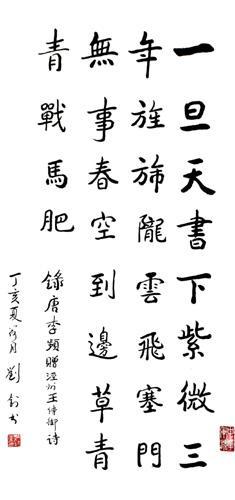 一旦天書下紫微三
年旌旆隴雲飛塞門
無事春空到邊草青
青戰馬肥
錄唐李頻贈涇州王侍御詩
丁亥夏月劉書